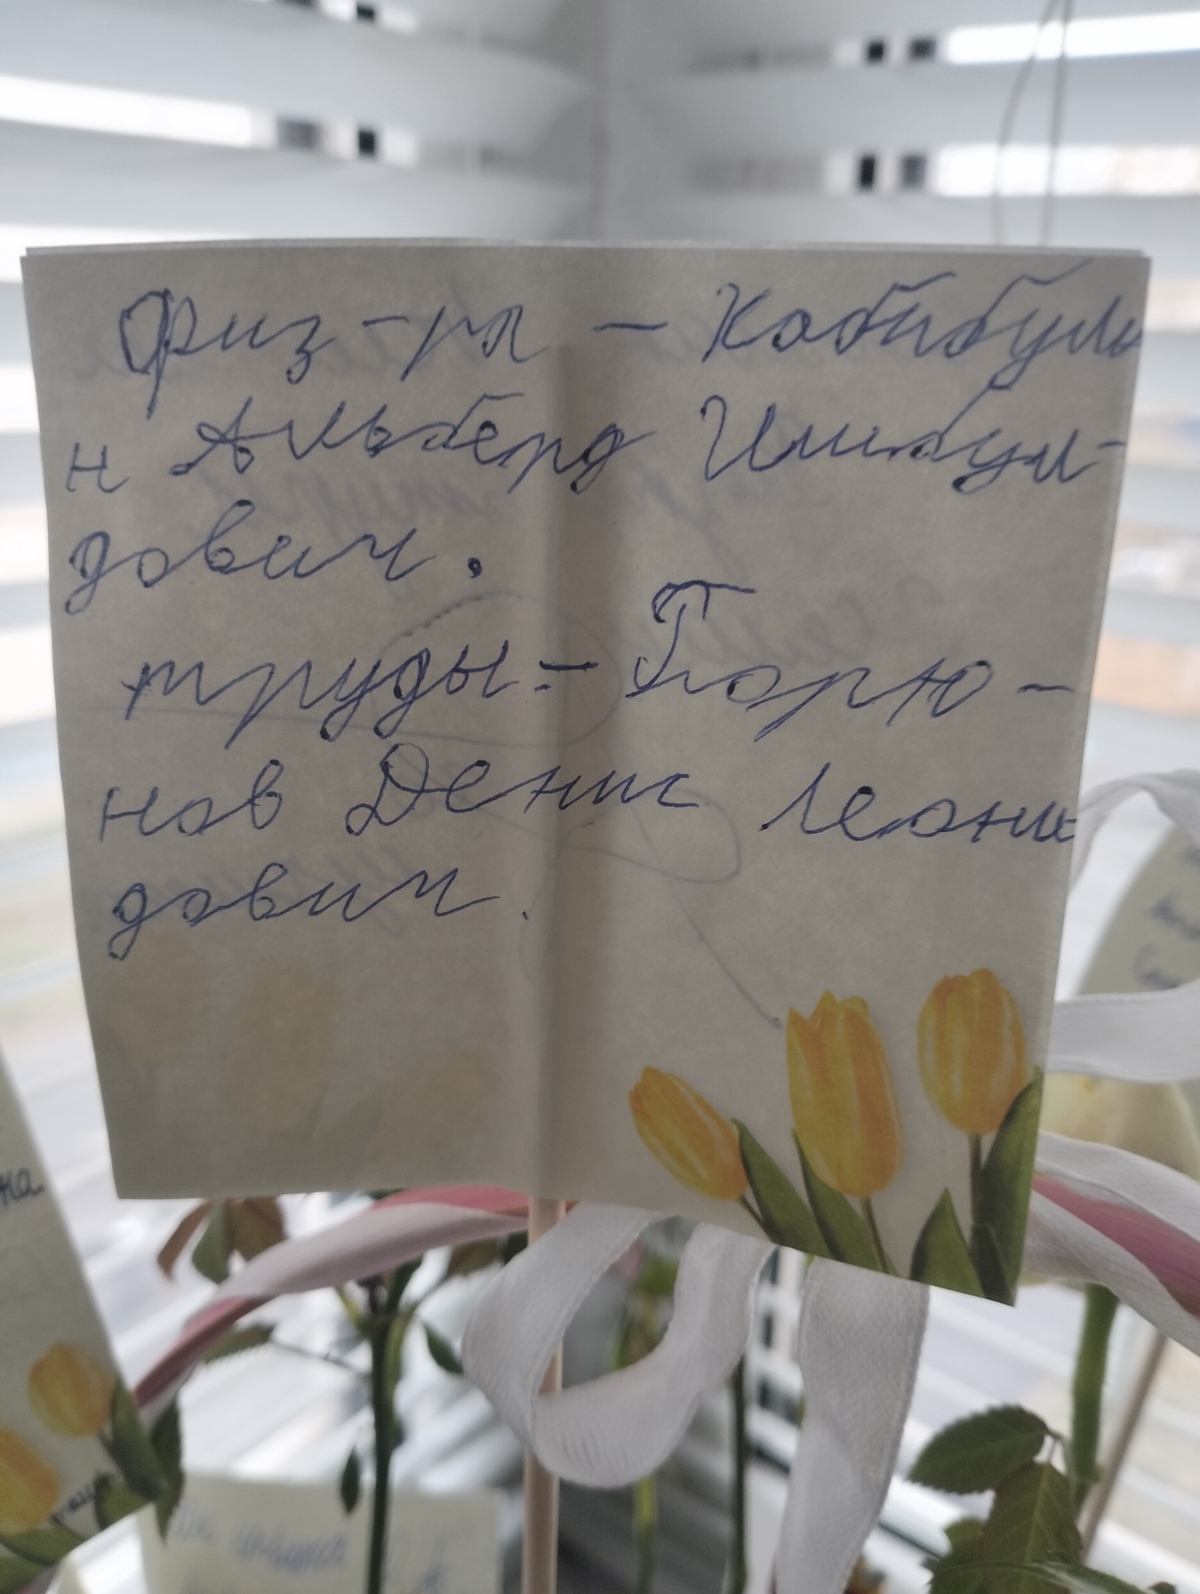 Физ-ра — Кабибули
н Альберд Ишбул-
дович.
труды:- Горю-
нов Денис Леони
дович.
на